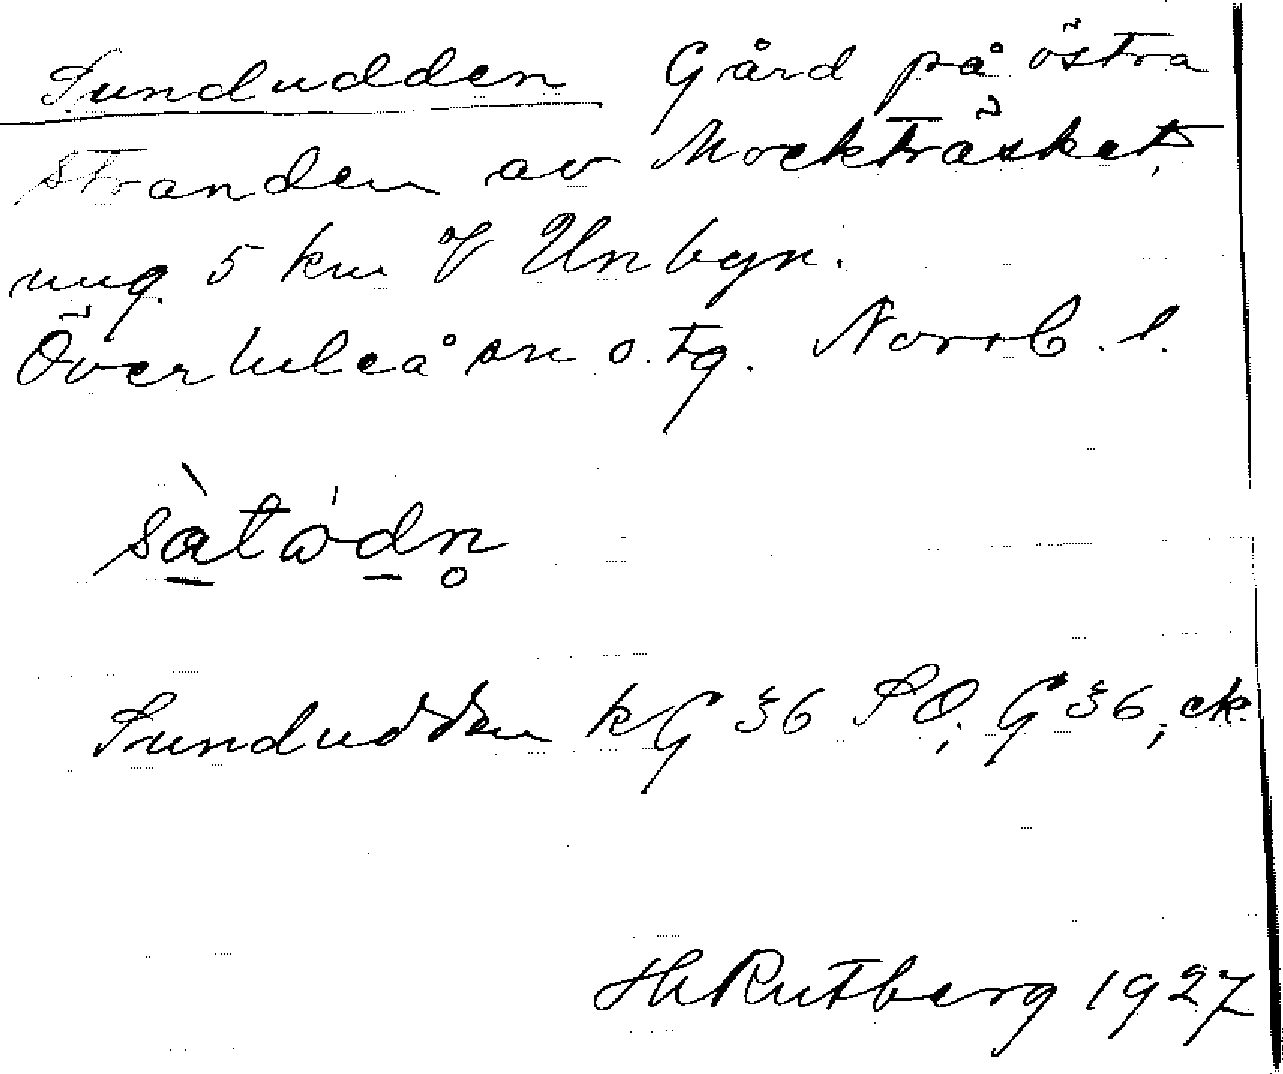 Sundudden Gård på östra
stranden av Mockträsket,
ung. 5 km V Unbyn.
Överluleå sn o. tg. Norrb. l.
sàtȯdn̥
Sundudden kG 36 SO; G 36, ek.
H Rutberg 1927